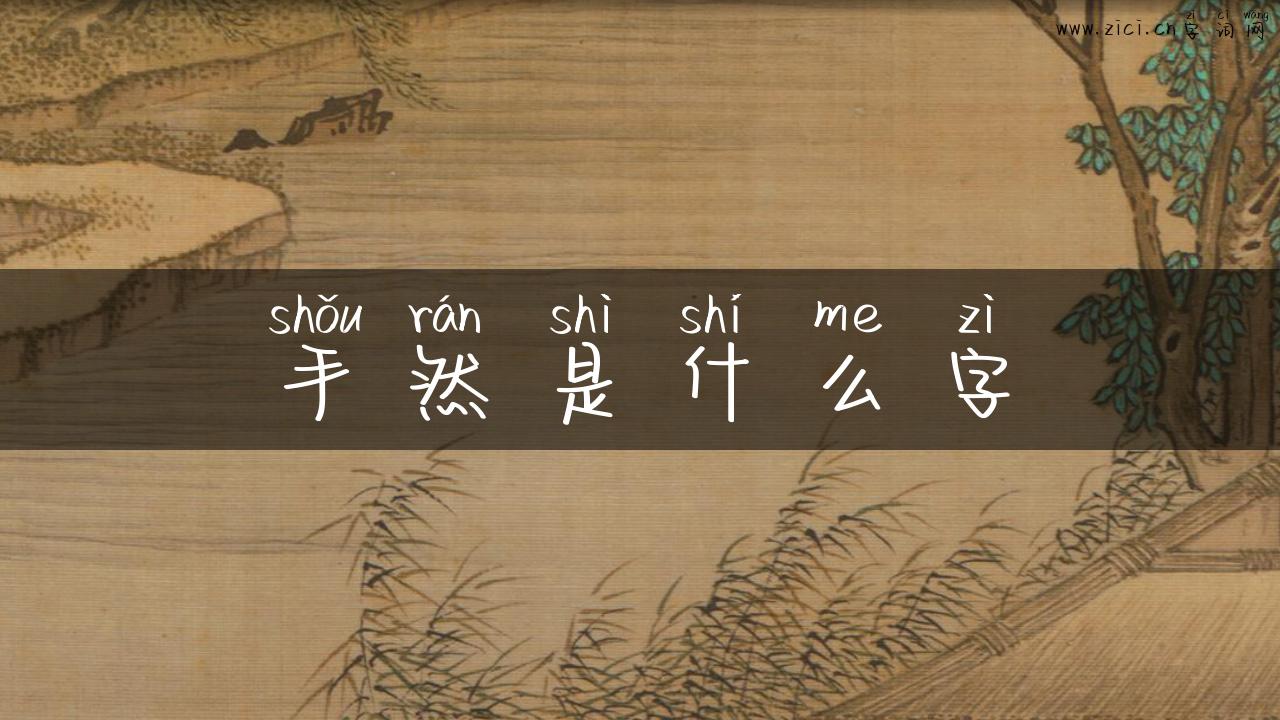 zì cí wǎng
www.zici.cn字词网
shǒu rán shì shí me zì
手然是什么字